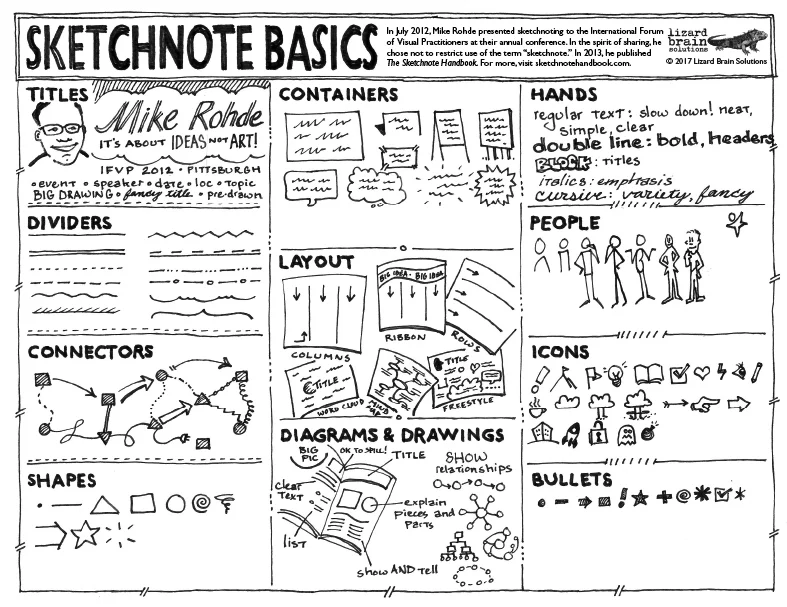 SKETCHNOTE BASICS
In July 2012, Mike Rohde presented sketchnoting to the International Forum
of Visual Practitioners at their annual conference. In the spirit of sharing, he
chose not to restrict use of the term "sketchnote." In 2013, he published
The Sketchnote Handbook. For more, visit sketchnotehandbook.com.
lizard
brain
solutions
© 2017 Lizard Brain Solutions
TITLES
Mike Rohde
IT'S ABOUT IDEAS NOT ART!
IFVP 2012 • PITTSBURGH
• event • speaker • date • loc • topic
BIG DRAWING • fancy title • pre-drawn
DIVIDERS
CONNECTORS
SHAPES
CONTAINERS
LAYOUT
BIG IDEA • BIG IDEA
COLUMNS
RIBBON
ROWS
TITLE
WORD CLOUD
MIND
MAP
TITLE
FREESTYLE
DIAGRAMS & DRAWINGS
BIG
PIC
OK TO SPILL!
TITLE
clear
TEXT
LIST
explain
pieces and
parts
show AND tell
SHOW
relationships
HANDS
regular text: slow down! neat,
simple, clear
double line: bold, headers
BLOCK: titles
italics: emphasis
cursive: variety, fancy
PEOPLE
ICONS
BULLETS